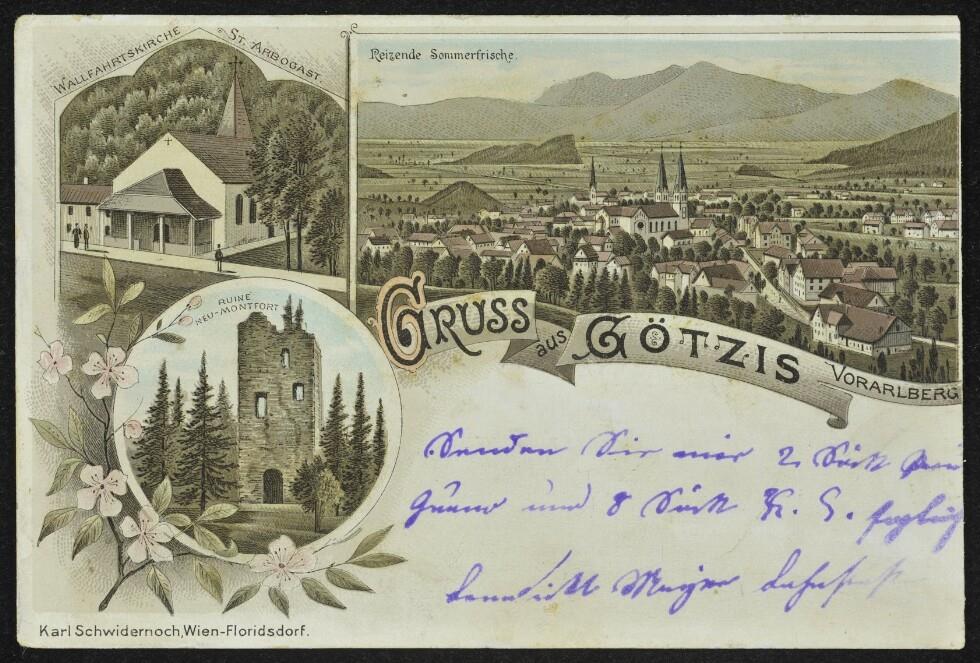 WALLFAHRTSKIRCHE ST. ARBOGAST.
Reizende Sommerfrische.
RUINE
NEU-MONTFORT
GRUSS aus GÖTZIS VORARLBERG
Senden Sie mir 2 Säck
Guano und 8 Säck K. S.
Mayer
Karl Schwidernoch, Wien-Floridsdorf.